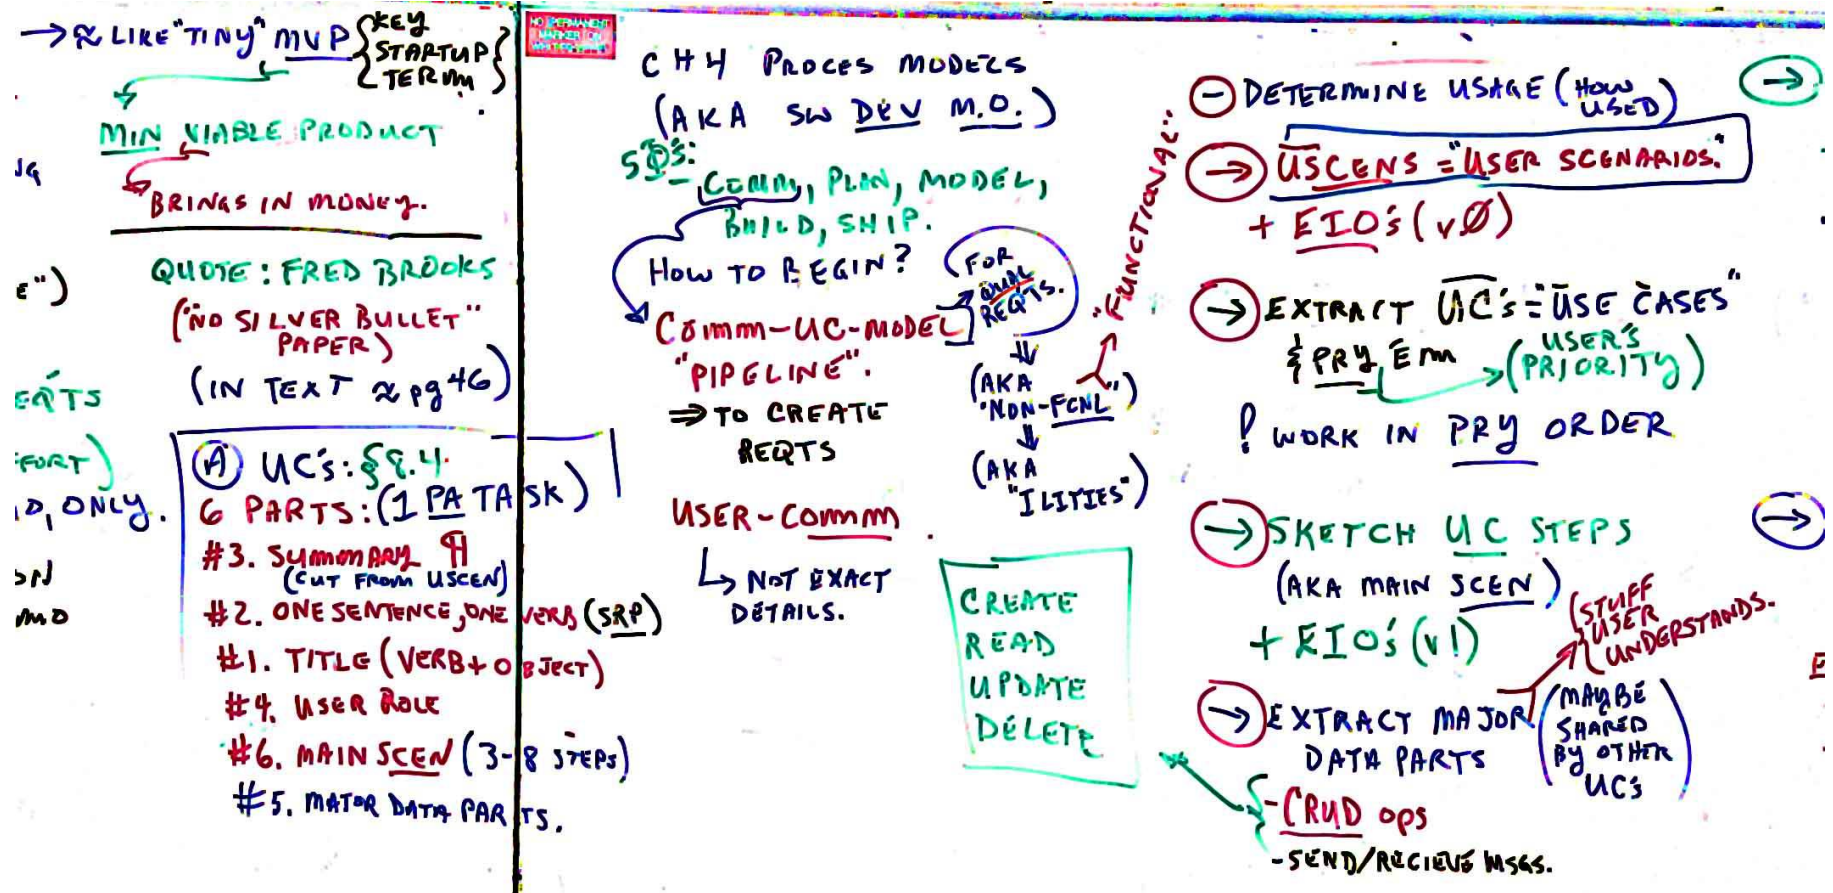 → ≈ LIKE "TINY" MVP { KEY
STARTUP
TERM }
MIN VIABLE PRODUCT
BRINGS IN MONEY.
QUOTE: FRED BROOKS
("NO SILVER BULLET"
PAPER)
(IN TEXT ≈ pg 46)
E")
EQTS
FORT)
D, ONLY.
ON
MO
Ⓐ UC's: §8.4.
6 PARTS: (1 PA TASK)
#3. SUMMARY ¶
(CUT FROM USCEN)
#2. ONE SENTENCE, ONE VERB (SRP)
#1. TITLE (VERB + OBJECT)
#4. USER ROLE
#6. MAIN SCEN (3-8 STEPS)
#5. MAJOR DATA PARTS.
NO PERMANENT
MARKER ON
WHITEBOARD
CH4 PROCES MODELS
(AKA SW DEV M.O.)
5 Φ's:
- COMM, PLAN, MODEL,
BUILD, SHIP.
HOW TO BEGIN?
COMM-UC-MODEL
"PIPELINE".
⇒ TO CREATE
REQTS
USER-COMM
↳ NOT EXACT
DETAILS.
FOR
QUAL
REQTS.
⇓
(AKA
"NON-FCNL")
⇓
(AKA
"ILITIES")
"FUNCTIONAL"
CREATE
READ
UPDATE
DELETE
- DETERMINE USAGE (HOW
USED)
→ USCENS = "USER SCENARIOS."
+ EIO's (vØ)
→ EXTRACT UC's = "USE CASES"
& PRY 'EM → (USER'S
PRIORITY)
! WORK IN PRY ORDER
→ SKETCH UC STEPS
(AKA MAIN SCEN)
+ EIO's (v1)
(STUFF
USER
UNDERSTANDS.
→ EXTRACT MAJOR
DATA PARTS
(MAYBE
SHARED
BY OTHER
UC's)
{ - CRUD OPS
- SEND/RECIEVE MSGS.
→
→